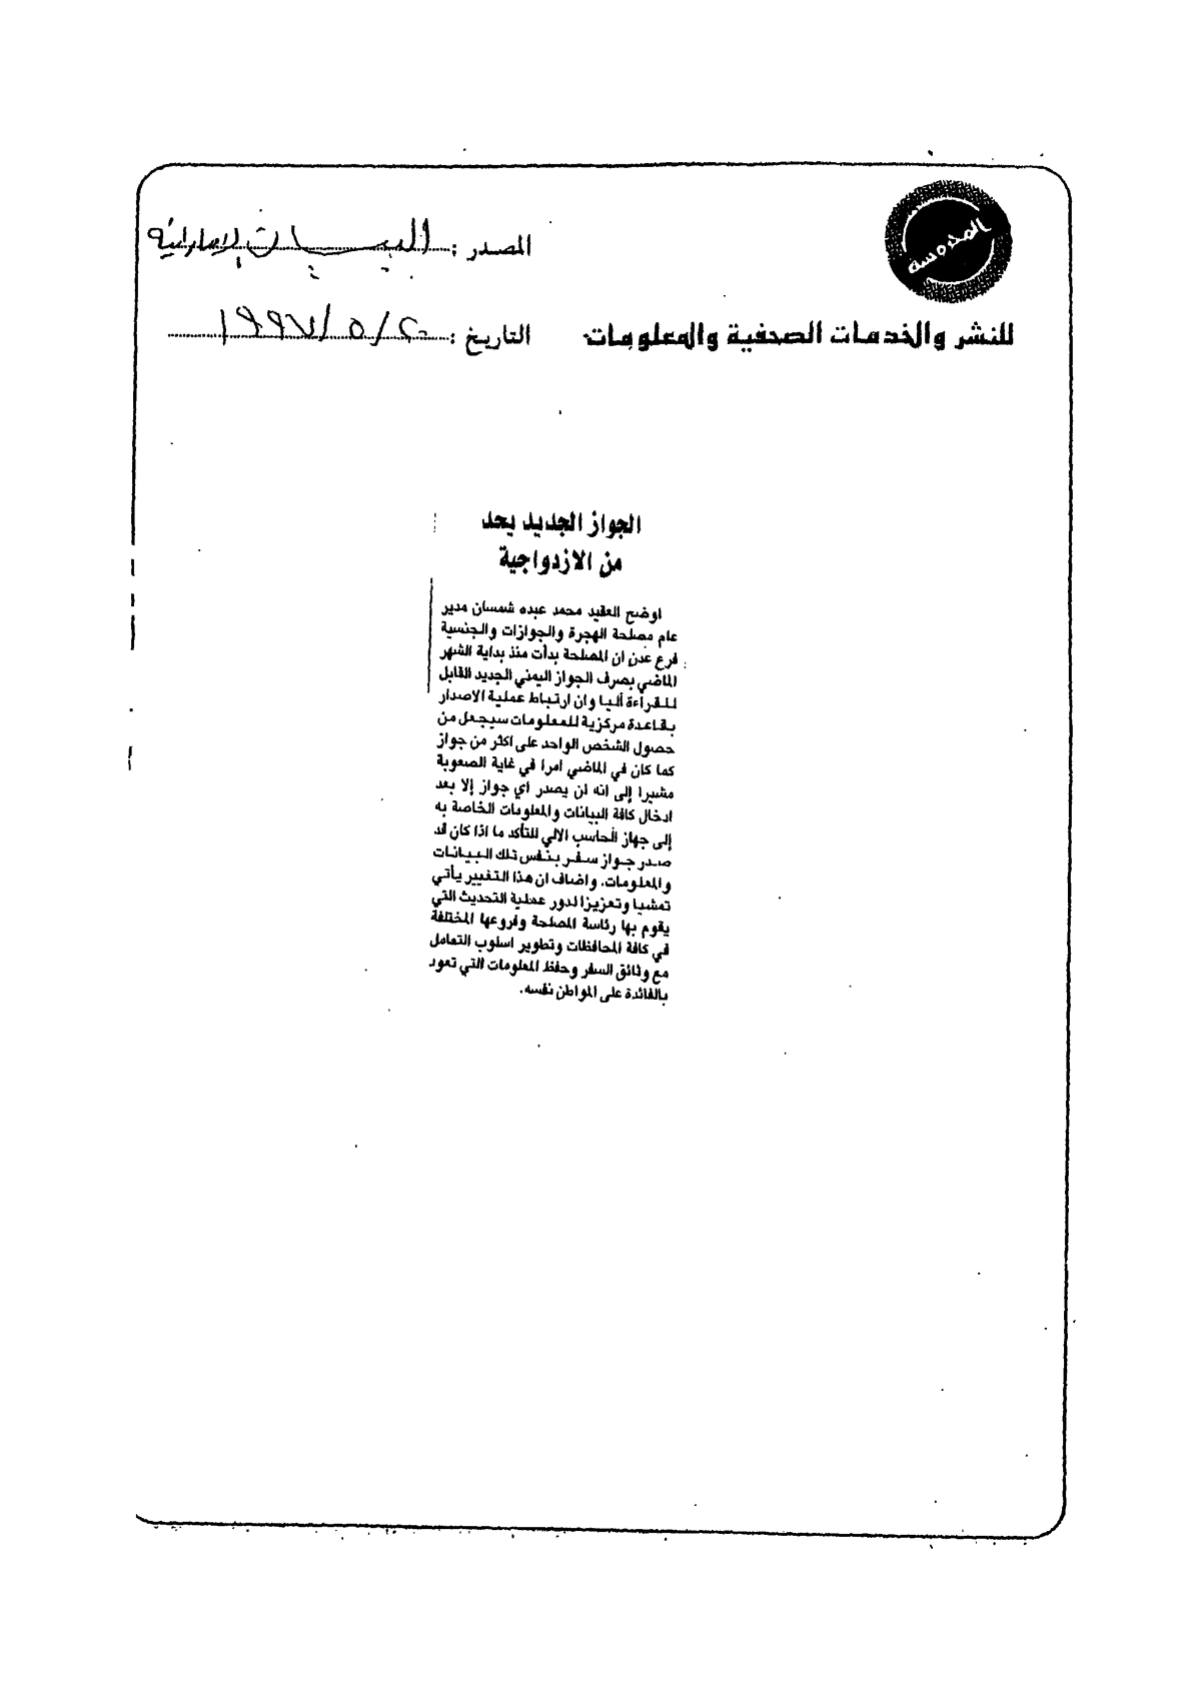 المحروسة
المصدر : البيان الإماراتية
للنشر والخدمات الصحفية والمعلومات
التاريخ : ٢٠/ ٥/ ١٩٩٧
الجواز الجديد يحد
من الازدواجية
اوضح العقيد محمد عبده شمسان مدير
عام مصلحة الهجرة والجوازات والجنسية
فرع عدن ان المصلحة بدأت منذ بداية الشهر
الماضي بصرف الجواز اليمني الجديد القابل
للقراءة أليا وان ارتباط عملية الاصدار
بقاعدة مركزية للمعلومات سيجعل من
حصول الشخص الواحد على اكثر من جواز
كما كان في الماضي امرا في غاية الصعوبة
مشيرا إلى انه لن يصدر اي جواز إلا بعد
ادخال كافة البيانات والمعلومات الخاصة به
إلى جهاز الحاسب الالي للتأكد ما اذا كان قد
صدر جواز سفر بنفس تلك البيانات
والمعلومات. واضاف ان هذا التغيير يأتي
تمشيا وتعزيزا لدور عملية التحديث التي
يقوم بها رئاسة المصلحة وفروعها المختلفة
في كافة المحافظات وتطوير اسلوب التعامل
مع وثائق السفر وحفظ المعلومات التي تعود
بالفائدة على المواطن نفسه.